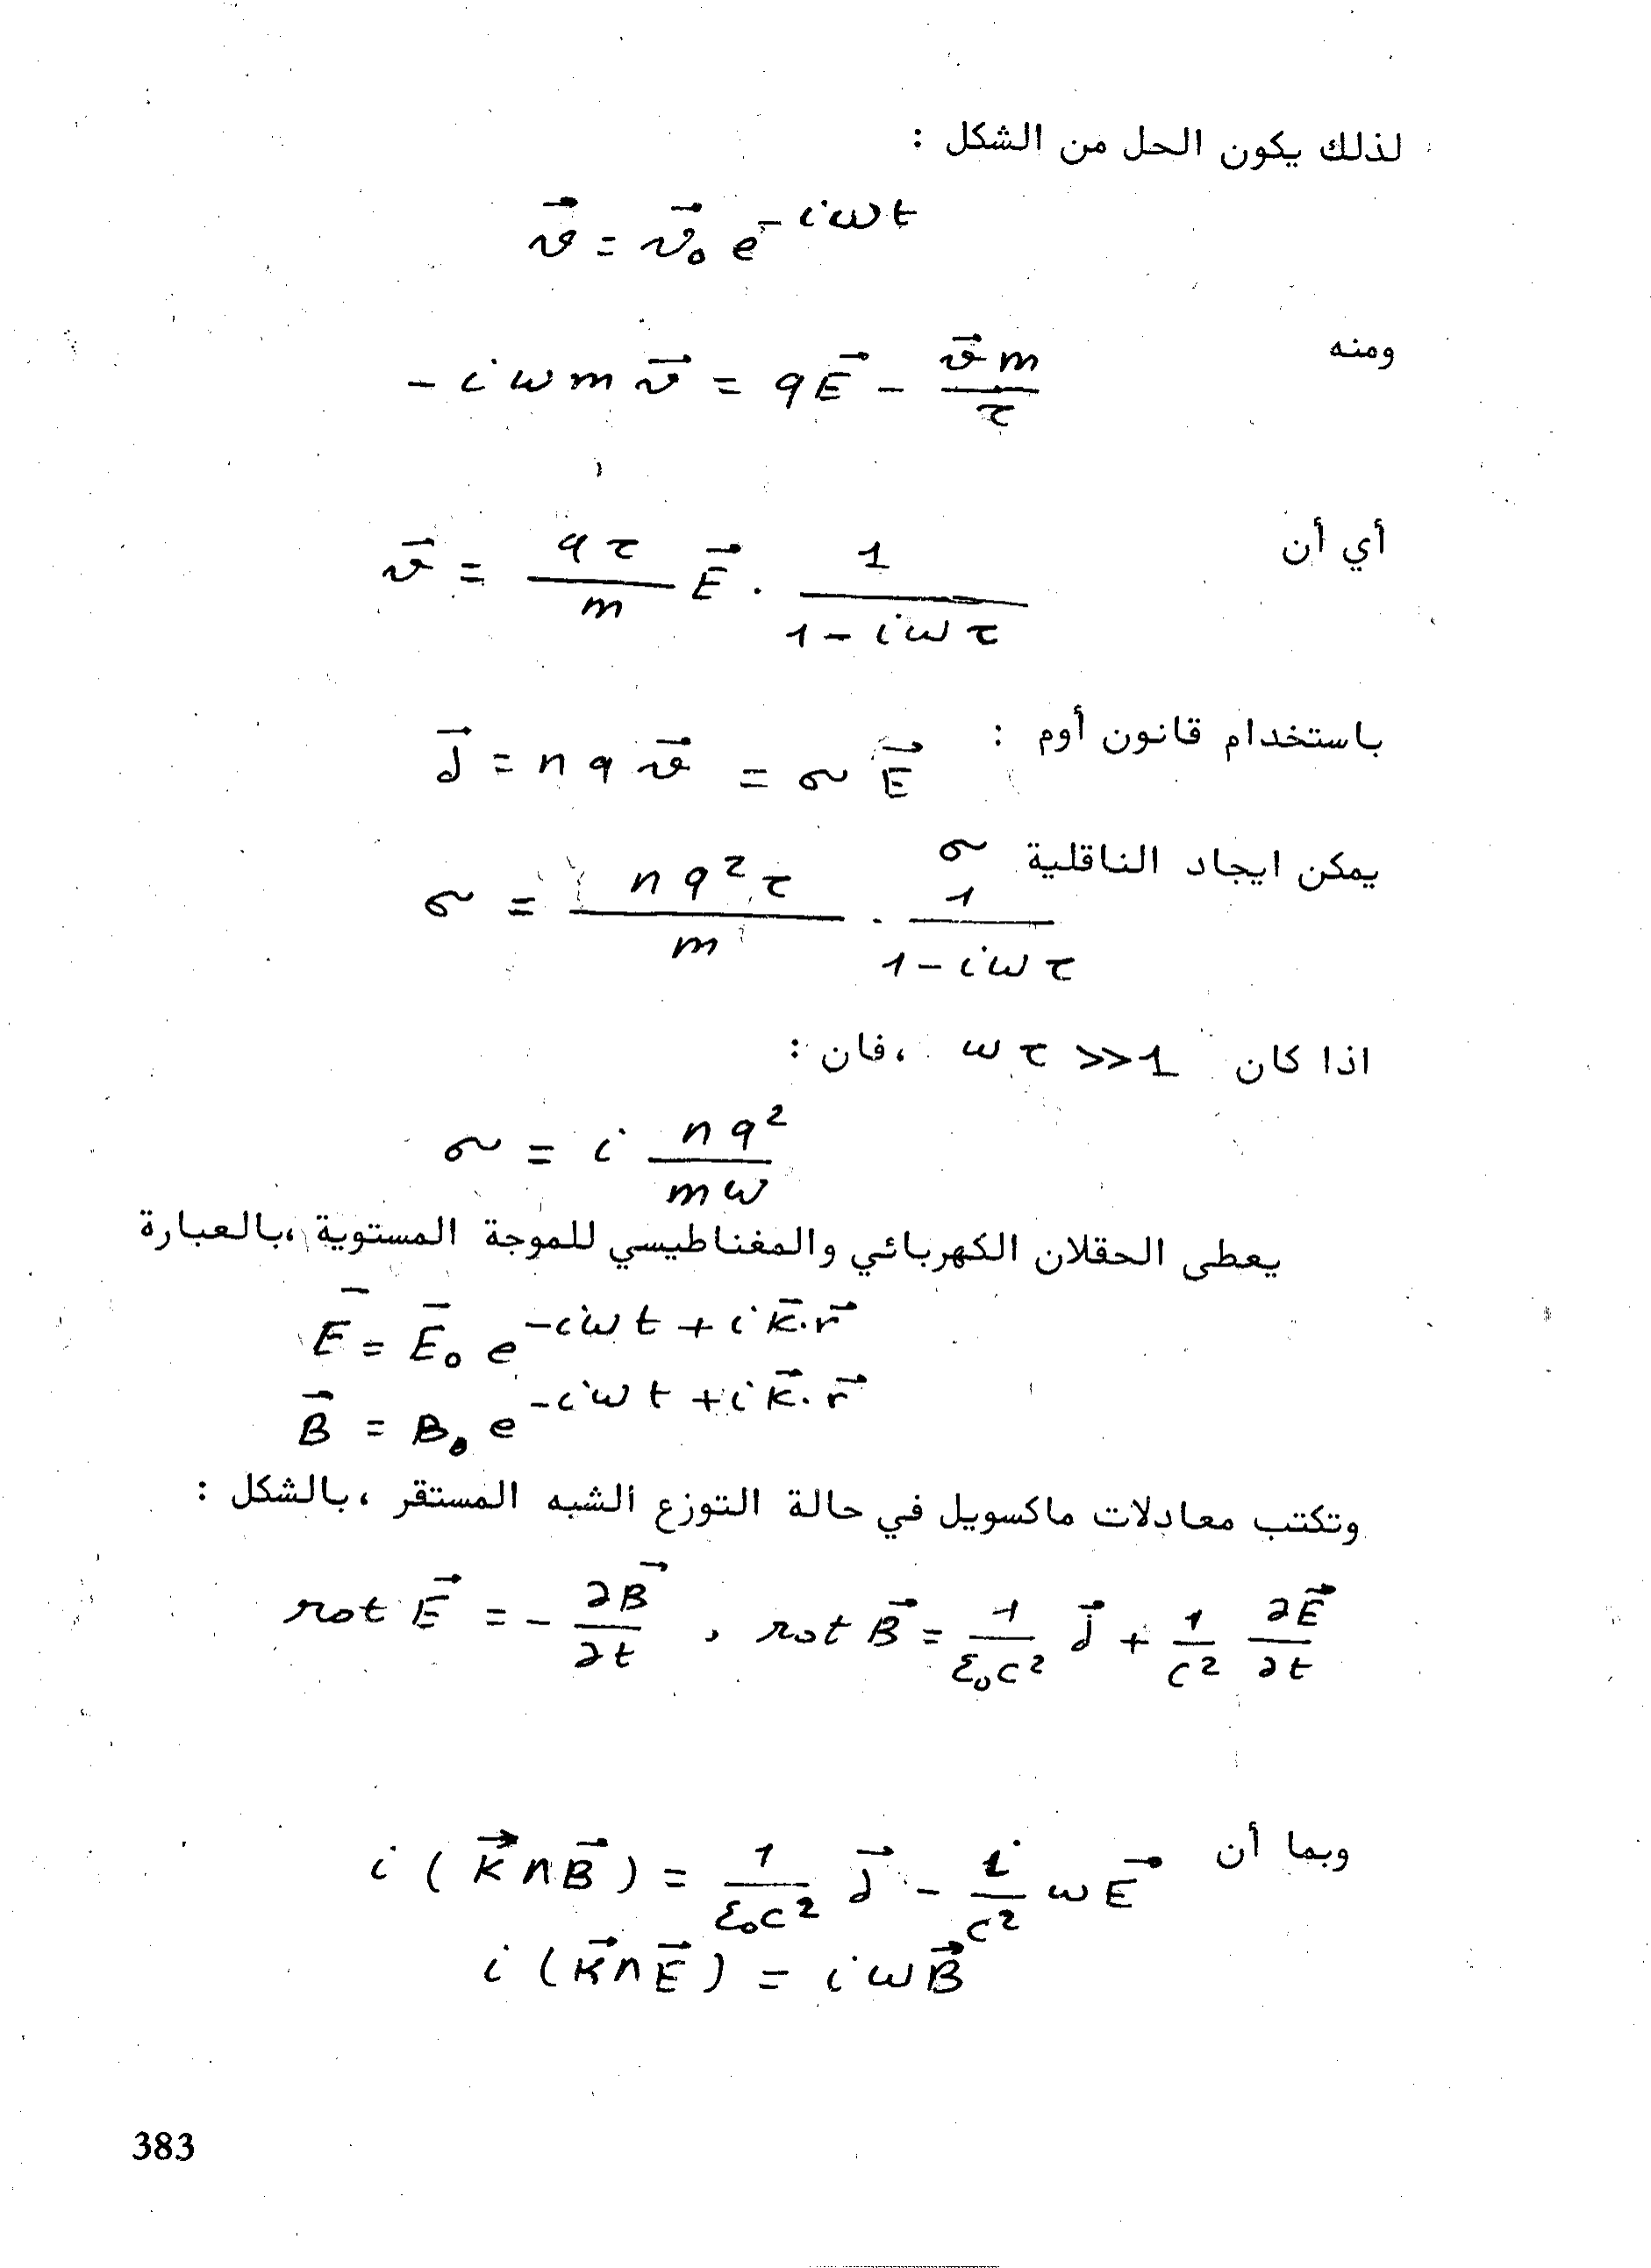 لذلك يكون الحل من الشكل :
$\vec{v} = \vec{v}_0 e^{-i\omega t}$
ومنه $-i\omega m\vec{v} = q\vec{E} - \frac{\vec{v}m}{\tau}$
أي أن $\vec{v} = \frac{q\tau}{m}\vec{E} \cdot \frac{1}{1-i\omega\tau}$
باستخدام قانون أوم : $\vec{J} = nq\vec{v} = \sigma\vec{E}$
يمكن ايجاد الناقلية σ
$\sigma = \frac{nq^2\tau}{m} \cdot \frac{1}{1-i\omega\tau}$
اذا كان $\omega\tau >> 1$ ،فان :
$\sigma = i\frac{nq^2}{m\omega}$
يعطى الحقلان الكهربائي والمغناطيسي للموجة المستوية ،بالعبارة
$\vec{E} = \vec{E}_0 e^{-i\omega t + i\vec{k}.\vec{r}}$
$\vec{B} = B_0 e^{-i\omega t + i\vec{k}.\vec{r}}$
وتكتب معادلات ماكسويل في حالة التوزع الشبه المستقر ،بالشكل :
$rot\vec{E} = -\frac{\partial\vec{B}}{\partial t}$ , $rot\vec{B} = \frac{1}{\varepsilon_0 c^2}\vec{J} + \frac{1}{c^2}\frac{\partial\vec{E}}{\partial t}$
وبما أن $i(\vec{k} \wedge \vec{B}) = \frac{1}{\varepsilon_0 c^2}\vec{J} - \frac{i}{c^2}\omega\vec{E}$
$i(\vec{k} \wedge \vec{E}) = i\omega\vec{B}$
383